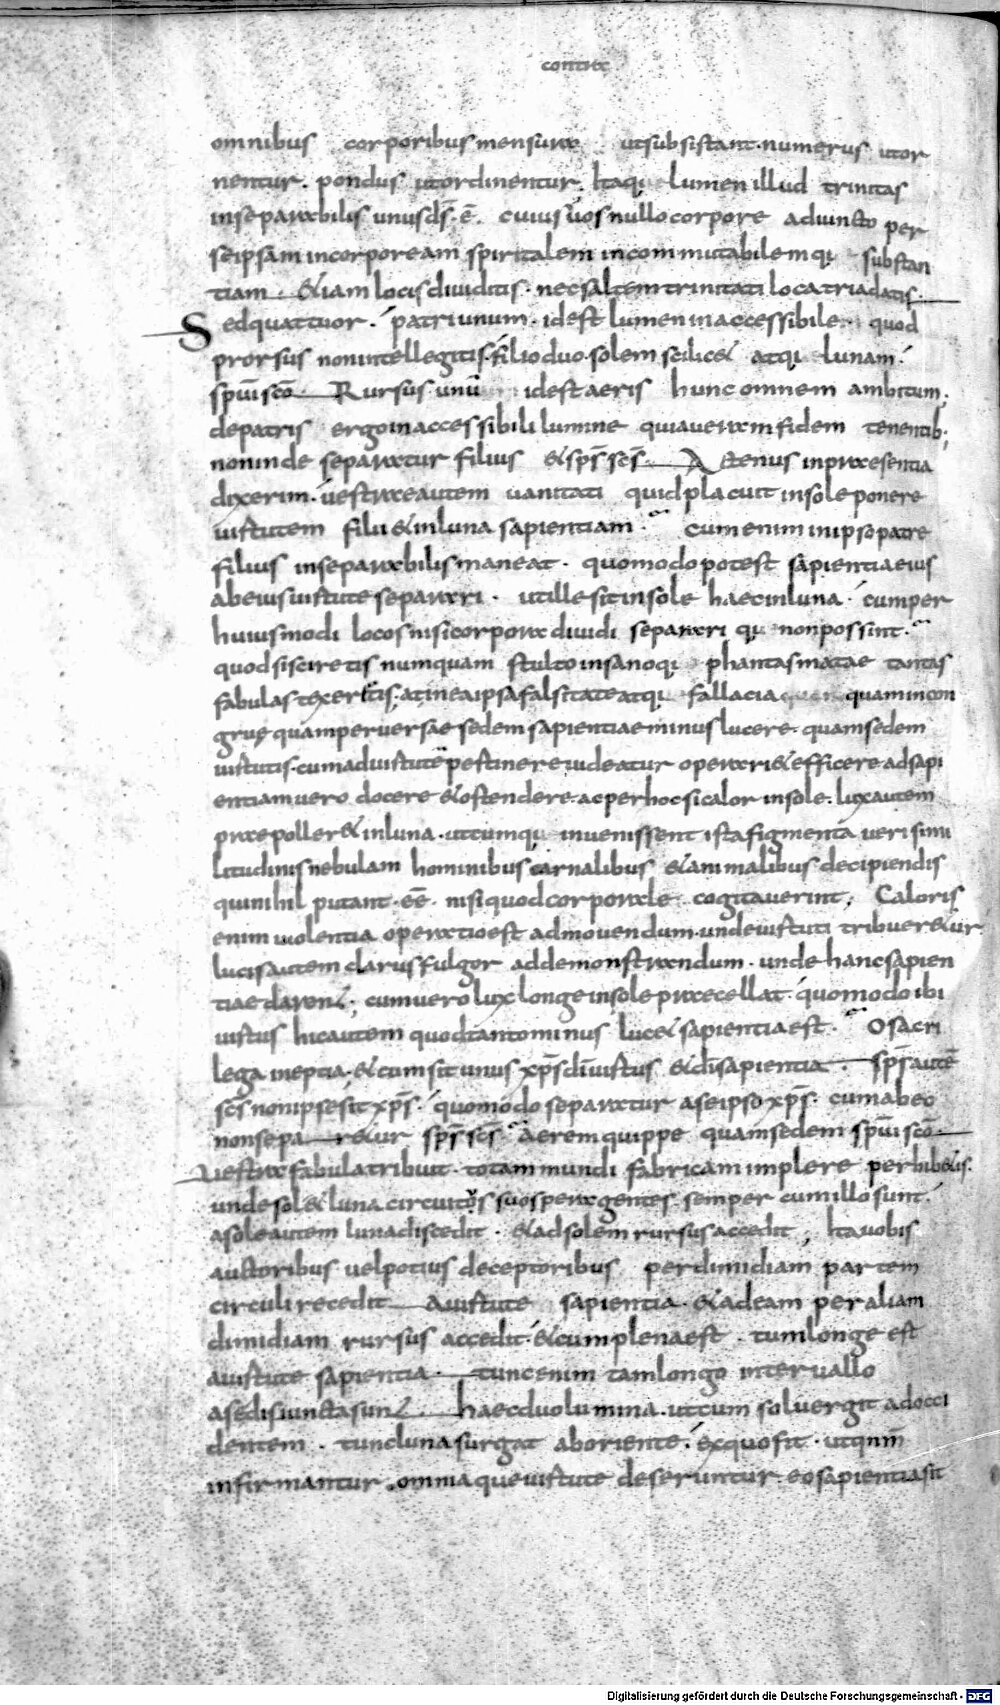 contra
omnibus corporibus mensura ut subsistant. numerus ut or
nentur. pondus ut ordinentur. Itaque lumen illud trinitas
inseparabilis unus ds̄. ē. cuius uos nullo corpore adiuncto per
seipsam incorpoream spiritalem incommutabilemq; substan
tiam. & iam locis diuiditis. nec saltem trinitati loca tria datis.
Sed quattuor. patri unum. id est lumen inaccessibile. quod
prorsus non intellegitis. filio duo. solem scilic& atq; lunam.
spūi scō. Rursus unū id est aeris hunc omnem ambitum;
de patris ergo inaccessibili lumine quia uera in fidem tenentib;
non inde separatur filius & sps̄ scs̄. Actenus in praesentia
dixerim. uestrae autem uanitati quid placuit in sole ponere
uirtutem filii & in luna sapientiam. Cum enim in ipso patre
filius inseparabilis maneat. quomodo potest sapientia eius
ab eius uirtute separari. ut ille sit in sole haec in luna. cum per
huiusmodi locos nisi corpora diuidi separari q; non possint.
quod si sciretis numquam stulto insanoq; phantasmatae tantas
fabulas texeretis. at in ea ipsa falsitate atq; fallacia quam incon
grue quam peruersae sedem sapientiae minus lucere. quam sedem
uirtutis. cum ad uirtutē pertinere uideatur operari & efficere. ad sapi
entiam uero docere & ostendere. ac per hoc si calor in sole. lux autem
praepoller& in luna. utcumq; inuenissent ista figmenta ueri simi
litudinis nebulam hominibus carnalibus & animalibus decipiendis
qui nihil putant. eē. nisi quod corporale cogitauerint; Caloris
enim uiolentia operatio est ad mouendum. unde uirtuti tribuer&ur.
lucis autem clarus fulgor ad demonstrandum. unde hanc sapien
tiae daren&; cum uero lux longe in sole praecellat. quomodo ibi
uirtus hic autem quod tanto minus luc& sapientia est. O sacri
lega ineptia. & cum sit unus xp̄s dī uirtus & dī sapientia. sps̄ autē
scs̄ non ipse sit xp̄s. quomodo separatur a seipso xp̄s. cum ab eo
non separ&ur sps̄ scs̄. aerem quippe quam sedem spūi scō
uestra fabula tribuit. totam mundi fabricam implere perhib&is.
unde sol & luna circuitos suos peragentes. semper cum illo sunt.
a sole autem luna discedit. & ad solem rursus accedit; Ita uobis
auctoribus uel potius deceptoribus per dimidiam partem
circuli recedit A uirtute sapientia. & ad eam per aliam
dimidiam rursus accedit. & cum plena est. tum longe est
a uirtute sapientia. tunc enim tam longo interuallo
a se disiuncta sun& haec duo lumina. ut cum sol uergit ad occi
dentem. tunc luna surgat ab oriente. ex quo fit. ut qnm̄
infirmantur. omnia que uirtute deseruntur. eo sapientia sit
Digitalisierung gefördert durch die Deutsche Forschungsgemeinschaft - DFG